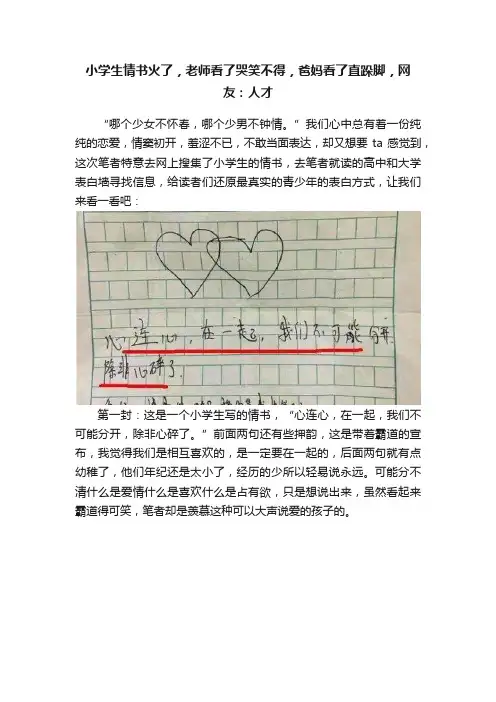 小学生情书火了，老师看了哭笑不得，爸妈看了直跺脚，网
友：人才
“哪个少女不怀春，哪个少男不钟情。”我们心中总有着一份纯
纯的恋爱，情窦初开，羞涩不已，不敢当面表达，却又想要 ta 感觉到，
这次笔者特意去网上搜集了小学生的情书，去笔者就读的高中和大学
表白墙寻找信息，给读者们还原最真实的青少年的表白方式，让我们
来看一看吧：
心连心，在一起，我们不可能分开.
除非心碎了.
第一封：这是一个小学生写的情书，“心连心，在一起，我们不
可能分开，除非心碎了。”前面两句还有些押韵，这是带着霸道的宣
布，我觉得我们是相互喜欢的，是一定要在一起的，后面两句就有点
幼稚了，他们年纪还是太小了，经历的少所以轻易说永远。可能分不
清什么是爱情什么是喜欢什么是占有欲，只是想说出来，虽然看起来
霸道得可笑，笔者却是羡慕这种可以大声说爱的孩子的。